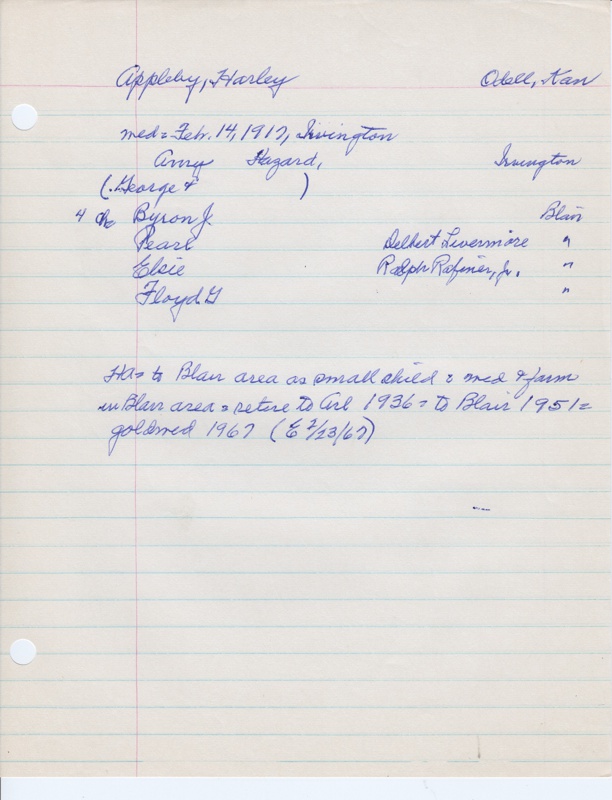 Appleby, Harley Odell, Kan
med = Feb. 14, 1917, Irvington
Amy Hazard, Irvington
(George & )
4 ch Byron J. Blair
Pearl Delbert Livermore "
Elsie Ralph Rafiner, Jr. "
Floyd G "
HA = to Blair area as small child = med & farm
in Blair area = retire to Arl 1936 = to Blair 1951 =
goldwed 1967 (E 2/23/67)